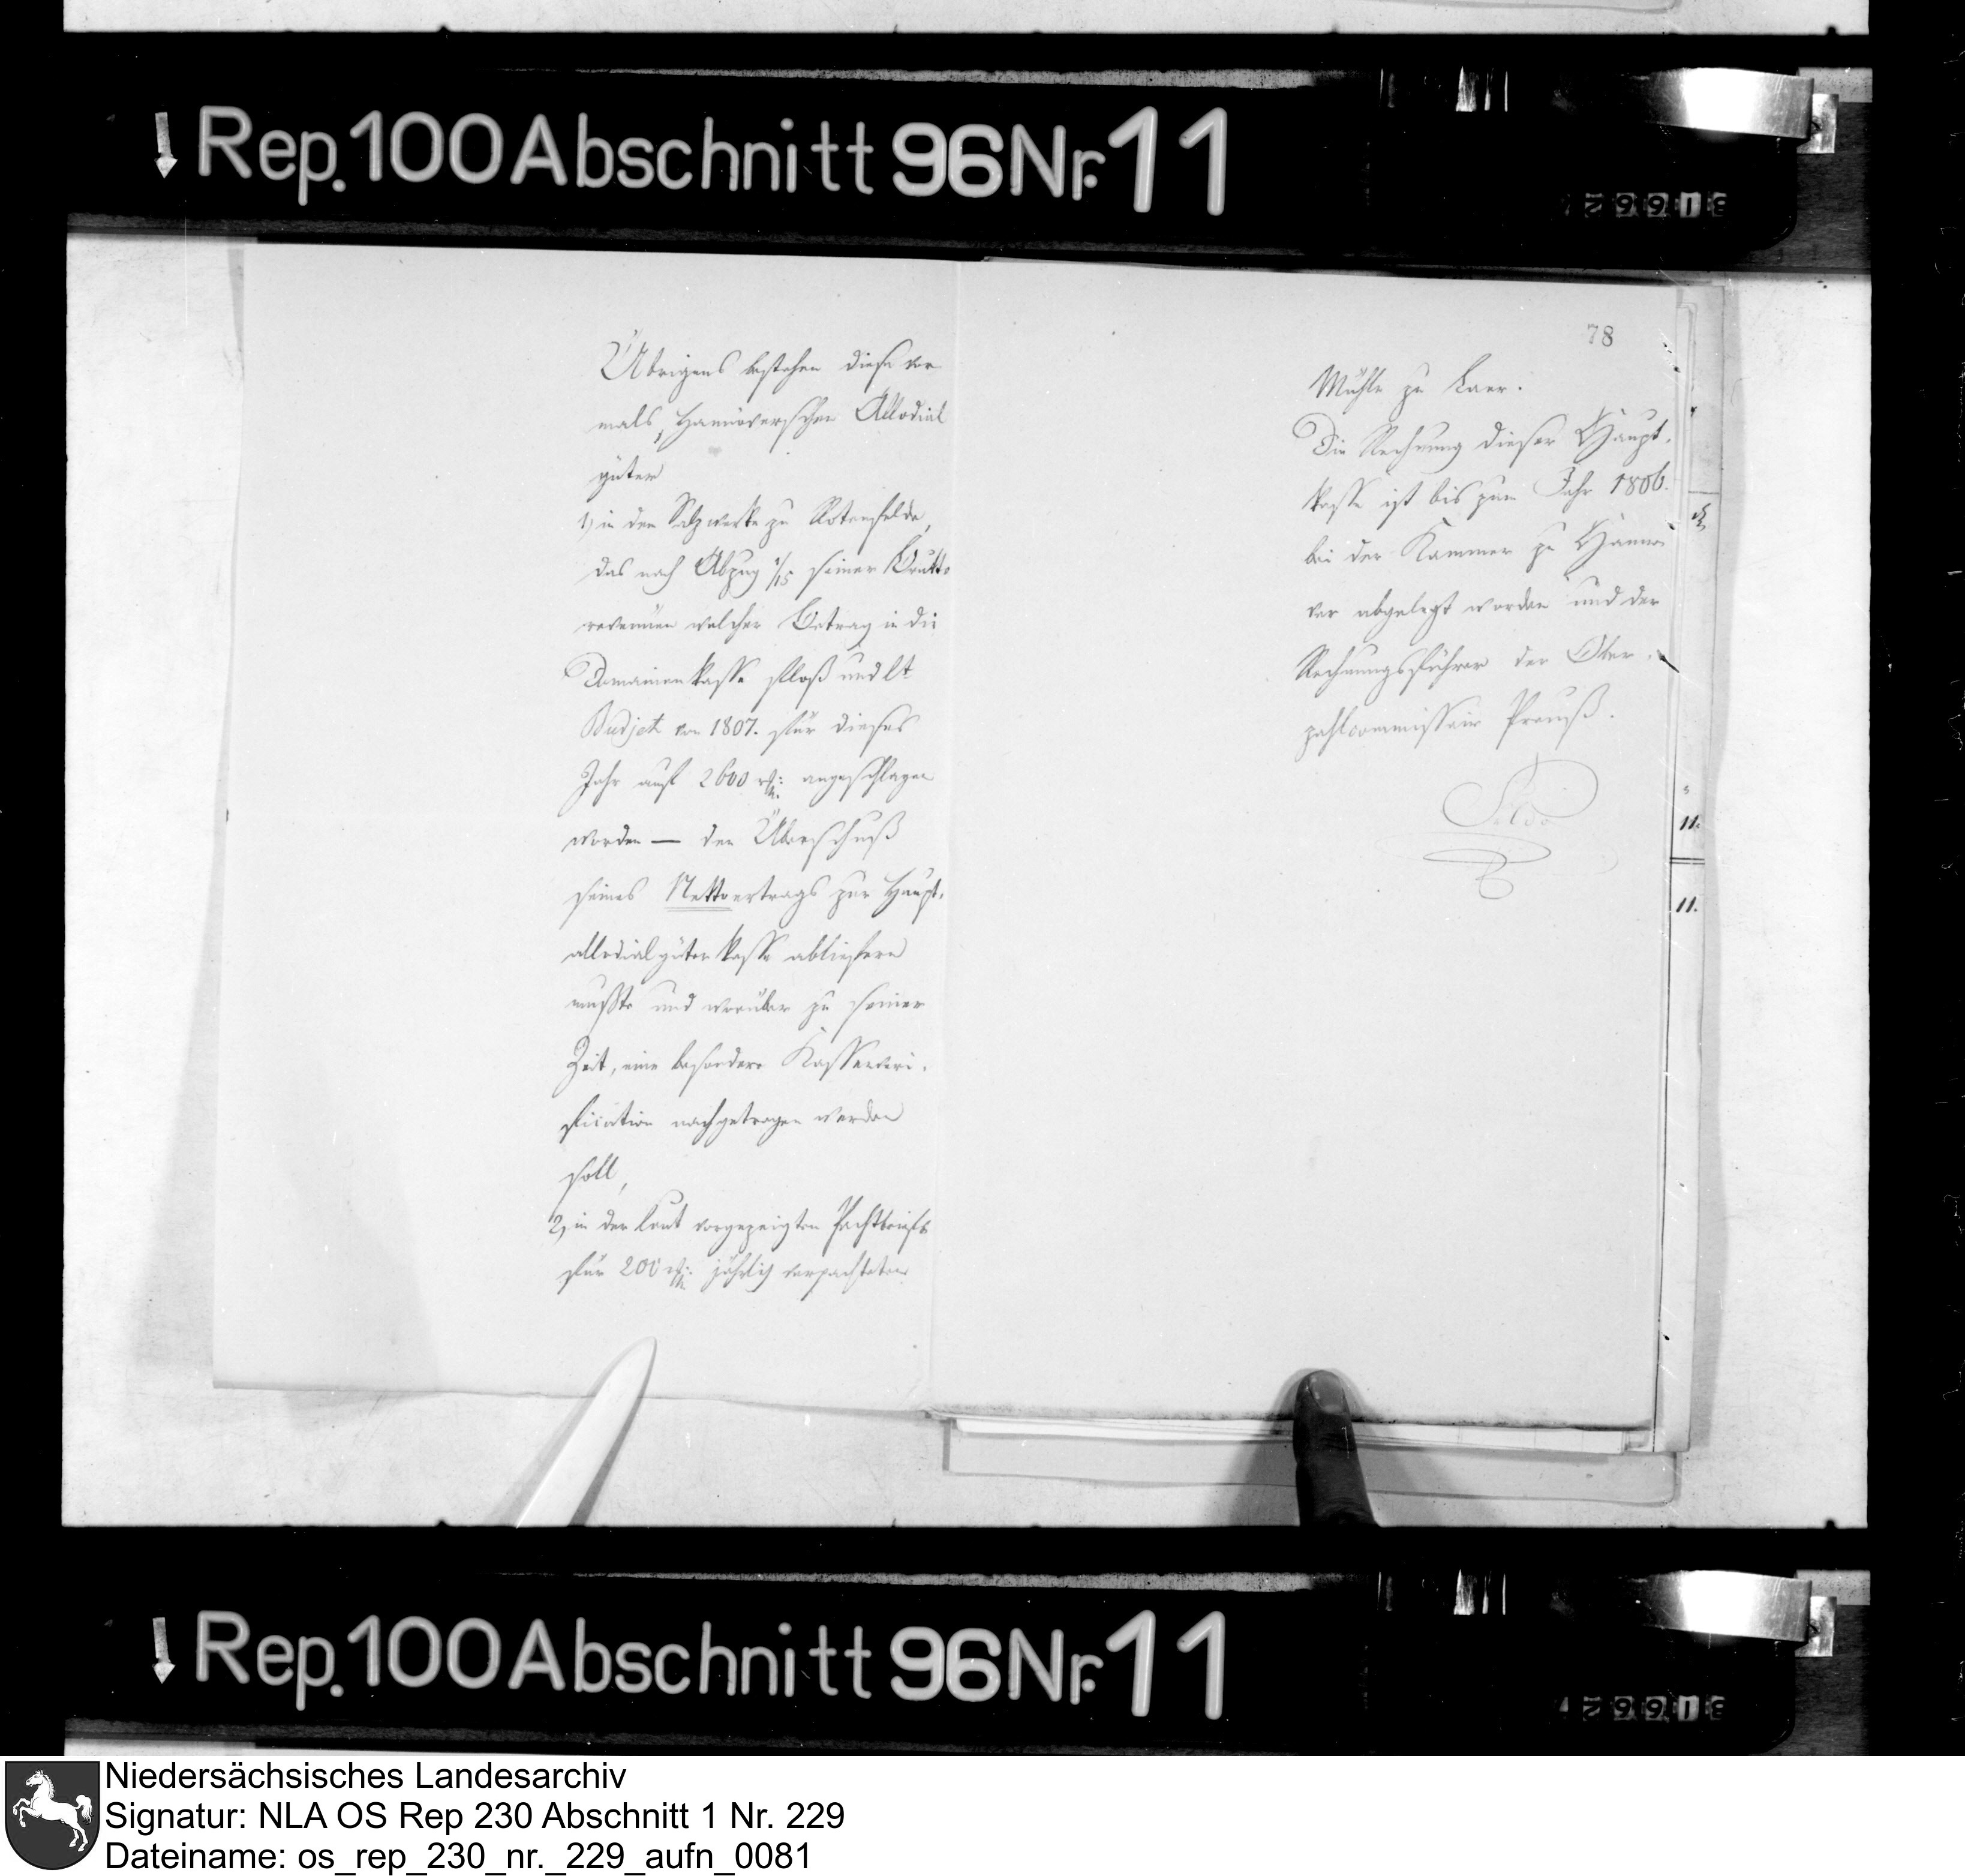 Rep. 100 Abschnitt 96 Nr. 11
31662
Übrigens bestehen diese vor
mals Hannöverschen Allodial
güter
1) in dem Salzwerke zu Rotenfelde,
das nach Abzug 1/15 seiner Brutto
revenüen welcher Betrag in die
Domainenkasse floß und lt
Budjet von 1807. für dieses
Jahr auf 2600 rthlr: angeschlagen
worden — den Überschuß
seines Nettoertrags zur Haupt-
allodialgüterkasse abliefern
mußte und worüber zu seiner
Zeit, eine besondere Kasseveri-
fication nachgetragen werden
soll,
2, in der laut vorgezeigten Pachtbriefs
für 200 rthlr: jährlich verpachteten
78
Mühle zu Laer.
Die Rechnung dieser Haupt-
kasse ist bis zum Jahr 1806.
bei der Kammer zu Hanno-
ver abgelegt worden und der
Rechnungsführer der Ober-
zahlcommissair Preuß.
11.
11.
Rep. 100 Abschnitt 96 Nr. 11
31662
Niedersächsisches Landesarchiv
Signatur: NLA OS Rep 230 Abschnitt 1 Nr. 229
Dateiname: os_rep_230_nr._229_aufn_0081